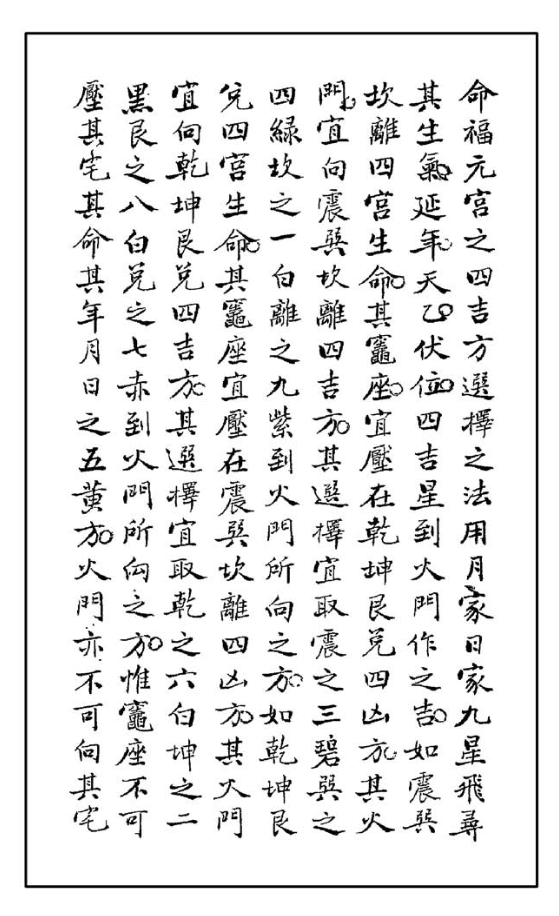 命福元宮之四吉方選擇之法用月家日家九星飛尋
其生氣延年天乙伏位四吉星到火門作之吉如震巽
坎離四宮生命其竈座宜壓在乾坤艮兌四凶方其火
門宜向震巽坎離四吉方其選擇宜取震之三碧巽之
四綠坎之一白離之九紫到火門所向之方如乾坤艮
兌四宮生命其竈座宜壓在震巽坎離四凶方其火門
宜向乾坤艮兌四吉方其選擇宜取乾之六白坤之二
黑艮之八白兌之七赤到火門所向之方惟竈座不可
壓其宅其命其年月日之五黃方火門亦不可向其宅